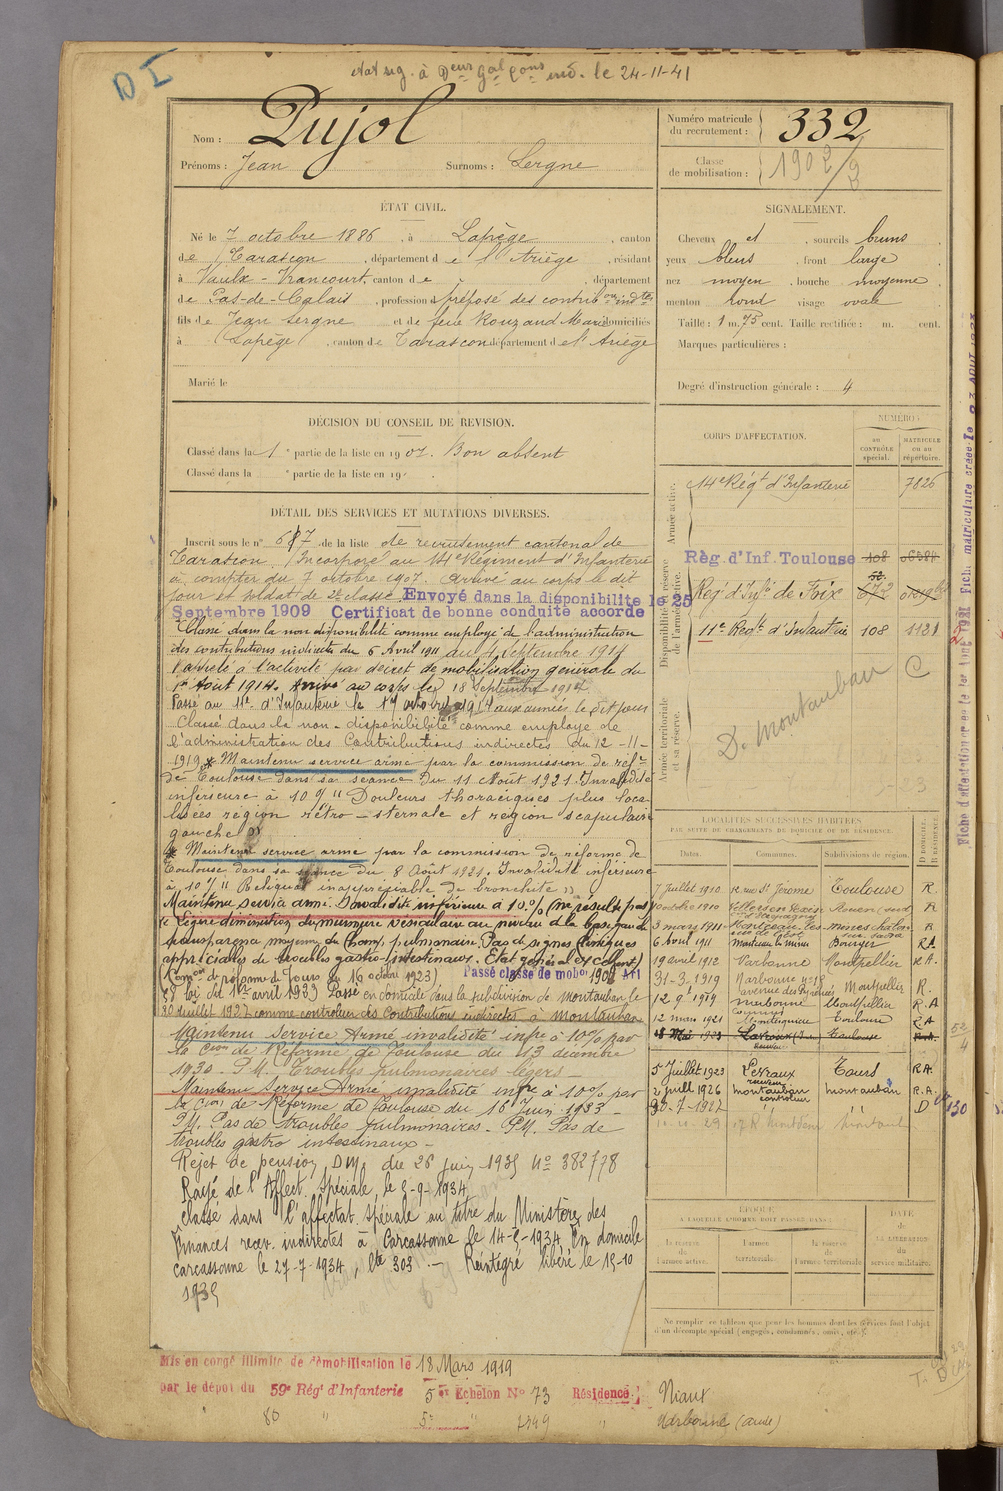 D I
Nom : Pujol
Prénoms : Jean Surnoms : Sergne
Numéro matricule
du recrutement : 332
Classe
de mobilisation : 1902
ÉTAT CIVIL.
Né le 7 octobre 1886, à Lapège, canton
de Tarascon, département de l'Ariège, résidant
à Vaulx-Vraucourt, canton de , département
de Pas-de-Calais, profession d préposé des contrib.ons ind.tes
fils de Jean Sergne et de feue Rouzaud Marie domiciliés
à Lapège, canton de Tarascon département de l'Ariège
Marié le
SIGNALEMENT.
Cheveux et , sourcils bruns
yeux bleus , front large
nez moyen , bouche moyenne
menton rond visage ovale
Taille : 1 m. 75 cent. Taille rectifiée : m. cent.
Marques particulières :
Degré d'instruction générale : 4
DÉCISION DU CONSEIL DE REVISION.
Classé dans la 1 e partie de la liste en 1907. Bon absent
Classé dans la e partie de la liste en 19
DÉTAIL DES SERVICES ET MUTATIONS DIVERSES.
Inscrit sous le n° 687 de la liste de recrutement cantonal de
Tarascon. Incorporé au 14e Régiment d'Infanterie
à compter du 7 octobre 1907. Arrivé au corps le dit
jour et soldat de 2e classe. Envoyé dans la disponibilité le 25
Septembre 1909 Certificat de bonne conduite accordé
Classé dans la non disponibilité comme employé de l'administration
des contributions indirectes du 6 Avril 1911 au 1 septembre 1914
Rappelé à l'activité par décret de mobilisation générale du
1er Août 1914. Arrivé au corps le 18 Septembre 1914
Passé au 11e d'Infanterie le 17 octobre 1914 aux armées le dit jour
Classé dans la non-disponibilité comme employé de
l'administration des Contributions indirectes du 12-11-
1919 * Maintenu service armé par la commission de réf.
de Toulouse dans sa séance du 11 Août 1921. Invalidité
inférieure à 10 % Douleurs thoraciques plus loca-
lisées région rétro-sternale et région scapulaire
gauche
* Maintenu service armé par la commission de réforme de
Toulouse dans sa séance du 8 Août 1921. Invalidité inférieure
à 10 % Reliquat inappréciable de bronchite
Maintenu service armé. Invalidité inférieure à 10 %
Légère diminution du murmure vésiculaire au niveau de la base
transparence moyenne du champ pulmonaire. Pas de signes cliniques
appréciables de troubles gastro-intestinaux. Etat général excellent
(Comon de réforme de Tours du 16 octobre 1923) Passé classe de mobon 1902 Art
58 loi du 1er avril 1923 Passé en domicile dans la subdivision de Montauban le
20 Juillet 1927 comme contrôleur des Contributions indirectes à Montauban
Maintenu Service Armé invalidité infre à 10% par
la Con de Réforme de Toulouse du 13 décembre
1930. P.M. Troubles pulmonaires légers
Maintenu Service Armé invalidité infre à 10% par
la Con de Réforme de Toulouse du 16 Juin 1933
P.M. Pas de troubles pulmonaires. P.M. Pas de
troubles gastro intestinaux
Rejet de pension, DM, du 26 juin 1935 N° 382778
Rayé de l'Affect. Spéciale, le 5-9-1934
Classé dans l'affectat. spéciale au titre du Ministère des
Finances recev. indirectes à Carcassonne le 14-5-1934 En domicile
Carcassonne le 27-7-1934, lte 303. Réintégré libéré le 15-10
1935
CORPS D'AFFECTATION.
NUMÉRO :
au CONTRÔLE spécial.
MATRICULE ou au répertoire.
Armée active.
14e Régt d'Infanterie 7826
Disponibilité et réserve de l'armée active.
Rég. d'Inf. Toulouse 108 6384
Reg. d'Infie de Foix 672
11e Regt d'Infantrie 108 1121
Armée territoriale et sa réserve.
D. Montauban C
LOCALITÉS SUCCESSIVES HABITÉES
PAR SUITE DE CHANGEMENTS DE DOMICILE OU DE RÉSIDENCE.
Dates. Communes. Subdivisions de région. D DOMICILE. R RÉSIDENCE.
7 Juillet 1910 St Jérome Toulouse R.
octobre 1910 Rouen R
3 mars 1911 Montceau-les-mines Chalon sur Saône R
6 Avril 1911 Bourges R.A.
19 avril 1912 Narbonne Montpellier R.A.
31-3-1919 Narbonne avenue des Pyrénées Montpellier R.
12 9e 1919 narbonne Montpellier R.A
12 mars 1921 Toulouse R.A
18 Mai 1923 Toulouse R.A.
5 Juillet 1923 Levroux Tours R.A.
2 juill 1926 montauban montauban R.A.
20-7-1927 controleur " " D
ÉPOQUE
À LAQUELLE L'HOMME DOIT PASSER DANS :
la réserve de l'armée active.
l'armée territoriale.
la réserve de l'armée territoriale
DATE de LA LIBÉRATION du service militaire.
Ne remplir ce tableau que pour les hommes dont les services font l'objet
d'un décompte spécial (engagés, condamnés, omis, etc.)
Mis en congé illimité de démobilisation le 18 Mars 1919
par le dépôt du 59e Rég' d'Infanterie 5e Echelon N° 73 Résidence : Niaux
" 80 " 5e " 2349 " Narbonne (Aude)